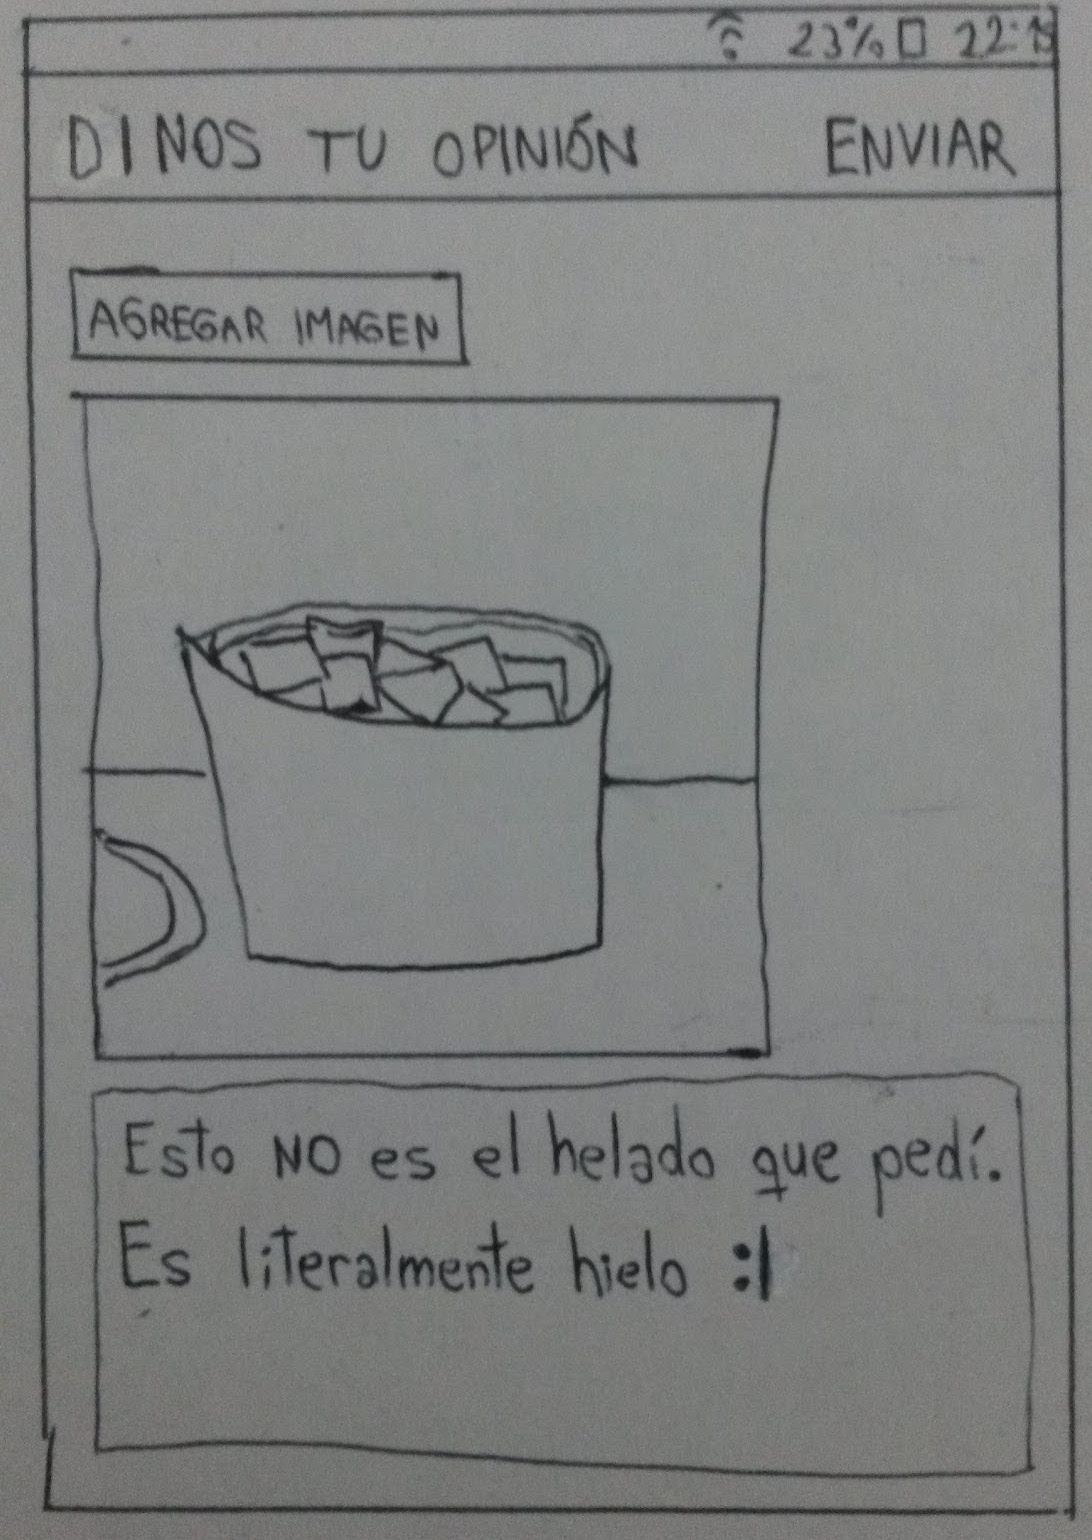 23% 22:15
DINOS TU OPINIÓN ENVIAR
AGREGAR IMAGEN
Esto NO es el helado que pedí.
Es literalmente hielo :|